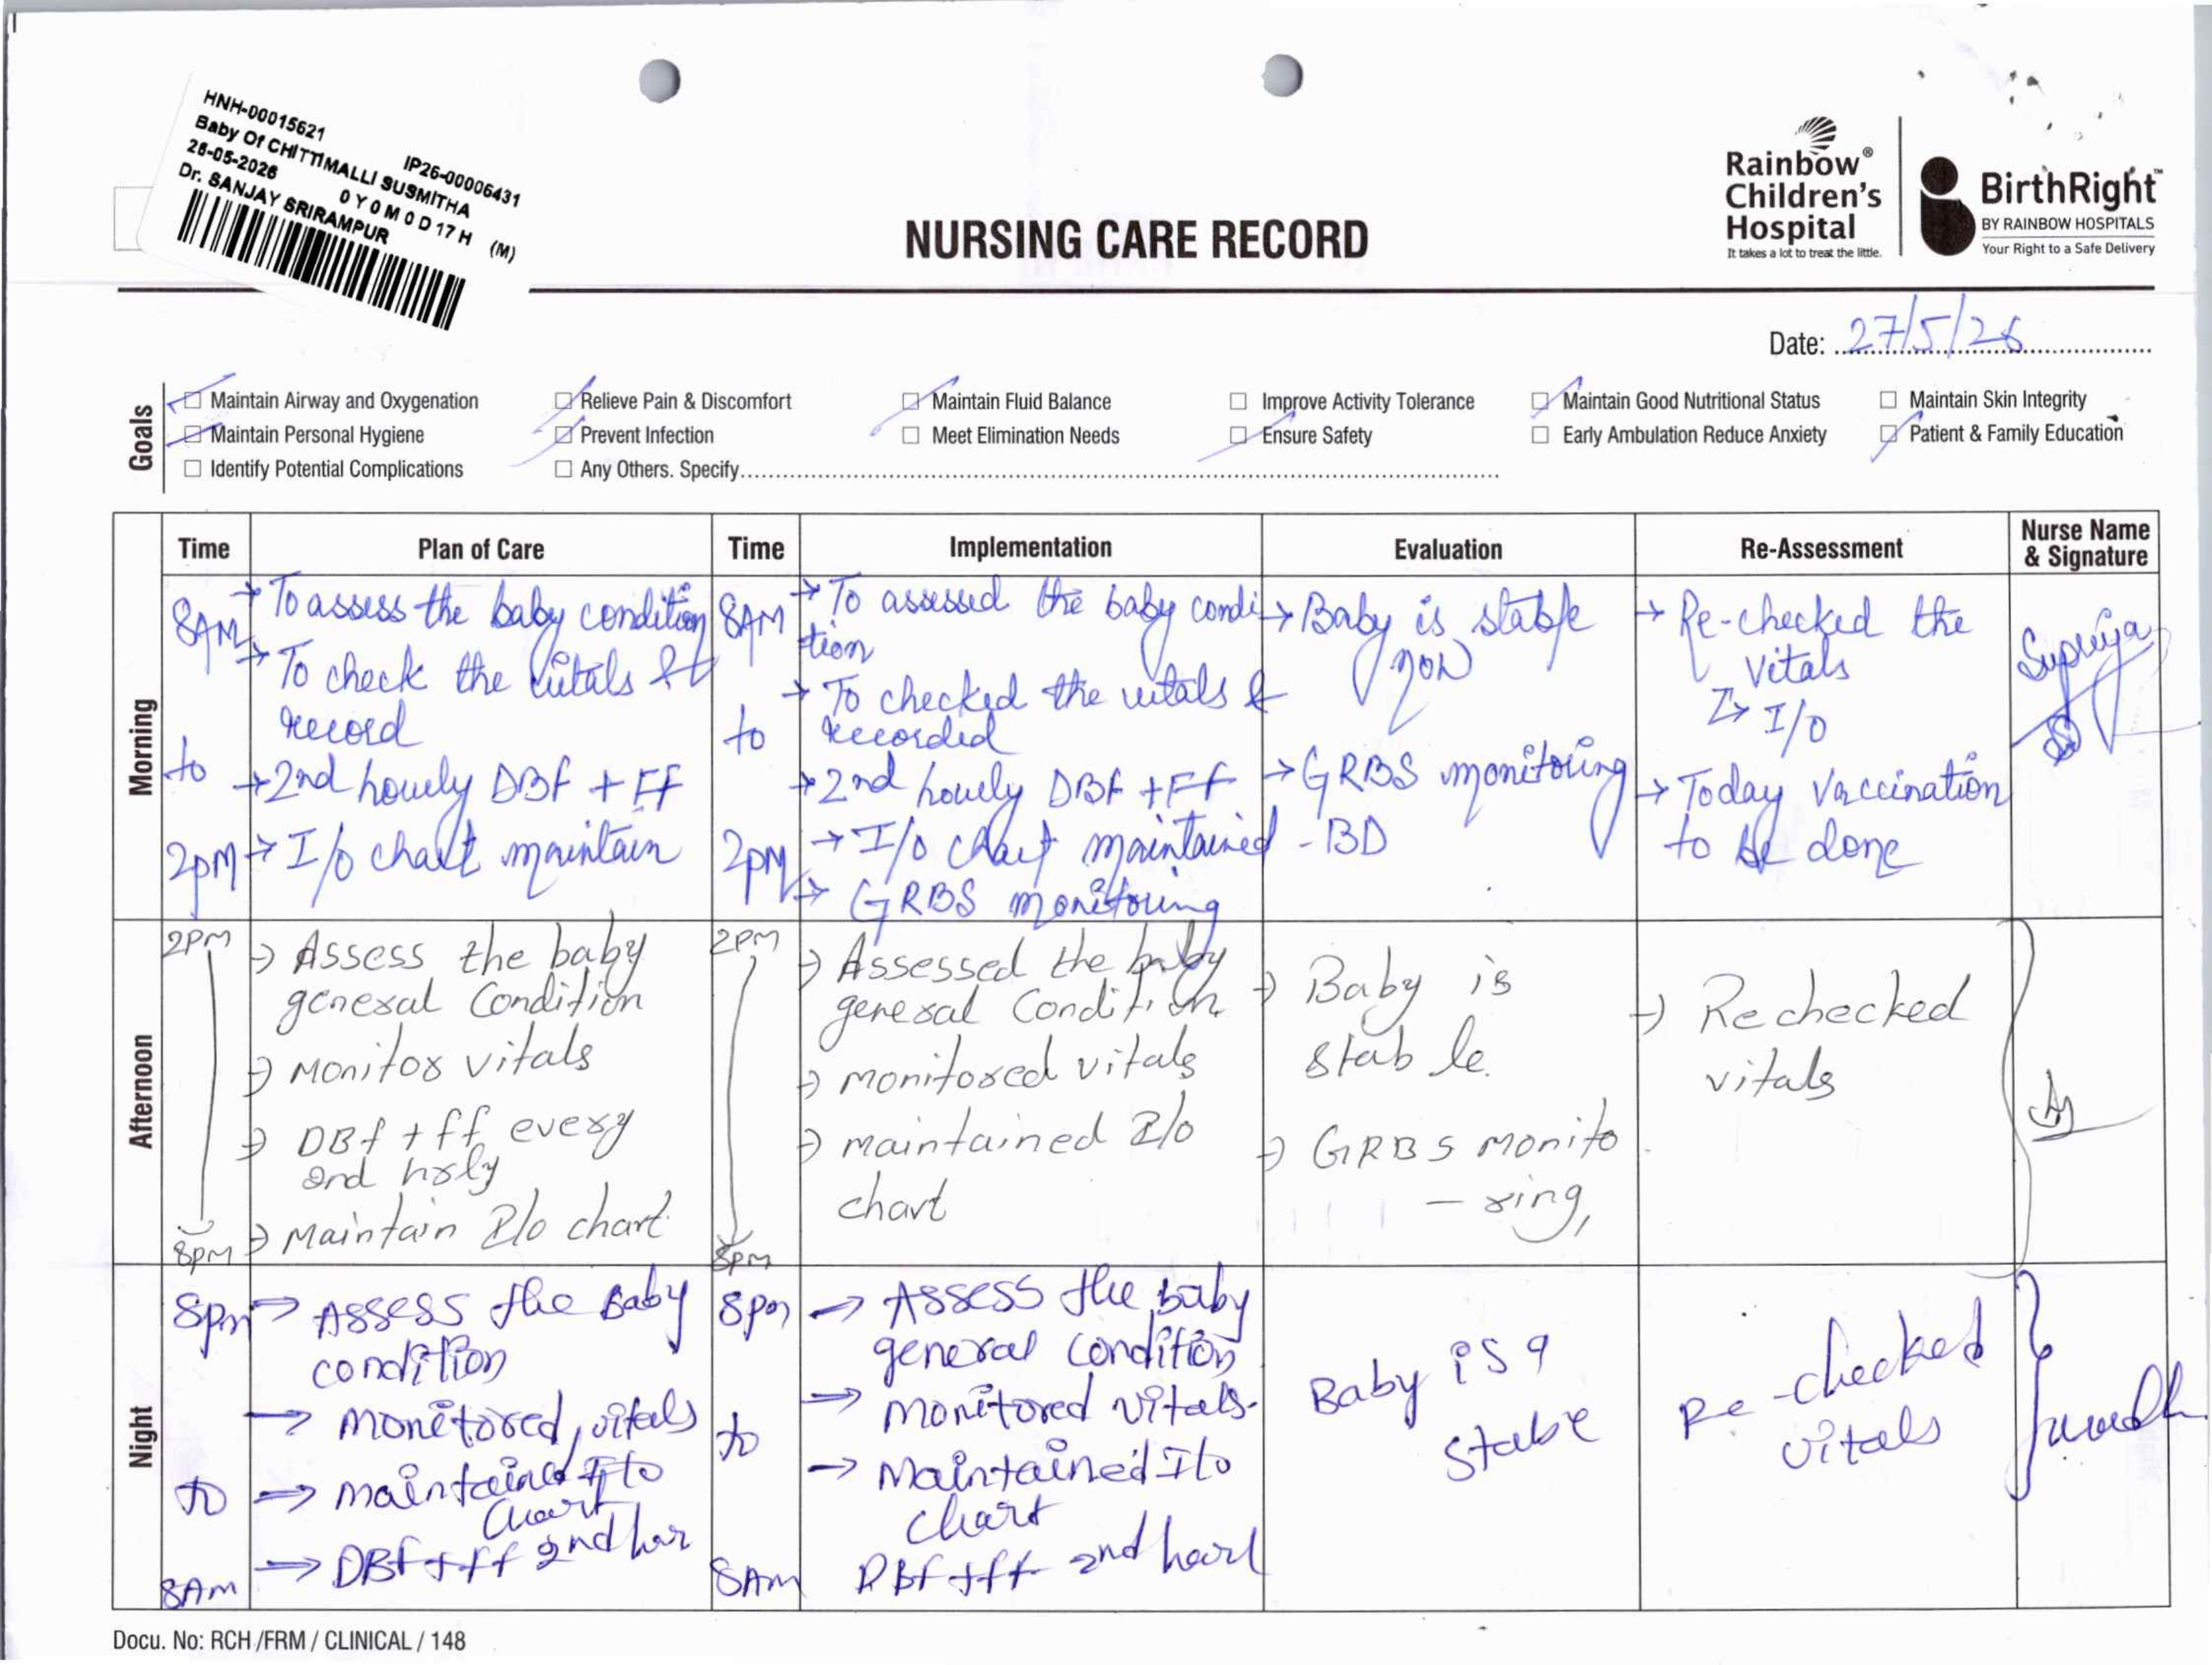 HNH-00015621
IP26-00006431
Baby Of CHITTIMALLI SUSMITHA
26-05-2026
0 Y 0 M 0 D 17 H (M)
Dr. SANJAY SRIRAMPUR
NURSING CARE RECORD
Rainbow®
Children's
Hospital
It takes a lot to treat the little.
BirthRight™
BY RAINBOW HOSPITALS
Your Right to a Safe Delivery
Date: 27/5/26
Goals
Maintain Airway and Oxygenation
Relieve Pain & Discomfort
Maintain Fluid Balance
Improve Activity Tolerance
Maintain Good Nutritional Status
Maintain Skin Integrity
Maintain Personal Hygiene
Prevent Infection
Meet Elimination Needs
Ensure Safety
Early Ambulation Reduce Anxiety
Patient & Family Education
Identify Potential Complications
Any Others. Specify
Time
Plan of Care
Time
Implementation
Evaluation
Re-Assessment
Nurse Name
& Signature
Morning
8AM
to
2PM
→ To assess the baby condition
→ To check the vitals &
record
→ 2nd hourly DBF + FF
→ I/o chart maintain
8AM
to
2PM
→ To assessed the baby condi
tion
→ To checked the vitals &
recorded
→ 2nd hourly DBF + FF
→ I/o chart maintained
→ GRBS monitoring
→ Baby is stable
now
→ GRBS monitoring
- BD
→ Re-checked the
vitals
→ I/O
→ Today Vaccination
to be done
Supriya
Afternoon
2PM
8PM
→ Assess the baby
general Condition
→ Monitor vitals
→ DBf + ff every
2nd hrly
→ Maintain I/o chart
2PM
8PM
→ Assessed the baby
general Condition
→ monitored vitals
→ maintained I/o
chart
→ Baby is
stable.
→ GRBS monito
- ring,
→ Rechecked
vitals
Night
8pm
to
8AM
→ Assess the Baby
condition
→ monitored vitals
→ maintained I/o
chart
→ DBf + ff 2nd hor
8pm
to
8AM
→ Assess the baby
general condition
→ monitored vitals.
→ Maintained I/o
chart
DBf + ff 2nd hourl
Baby is a
stabe
Re-checked
vitals
Docu. No: RCH /FRM / CLINICAL / 148